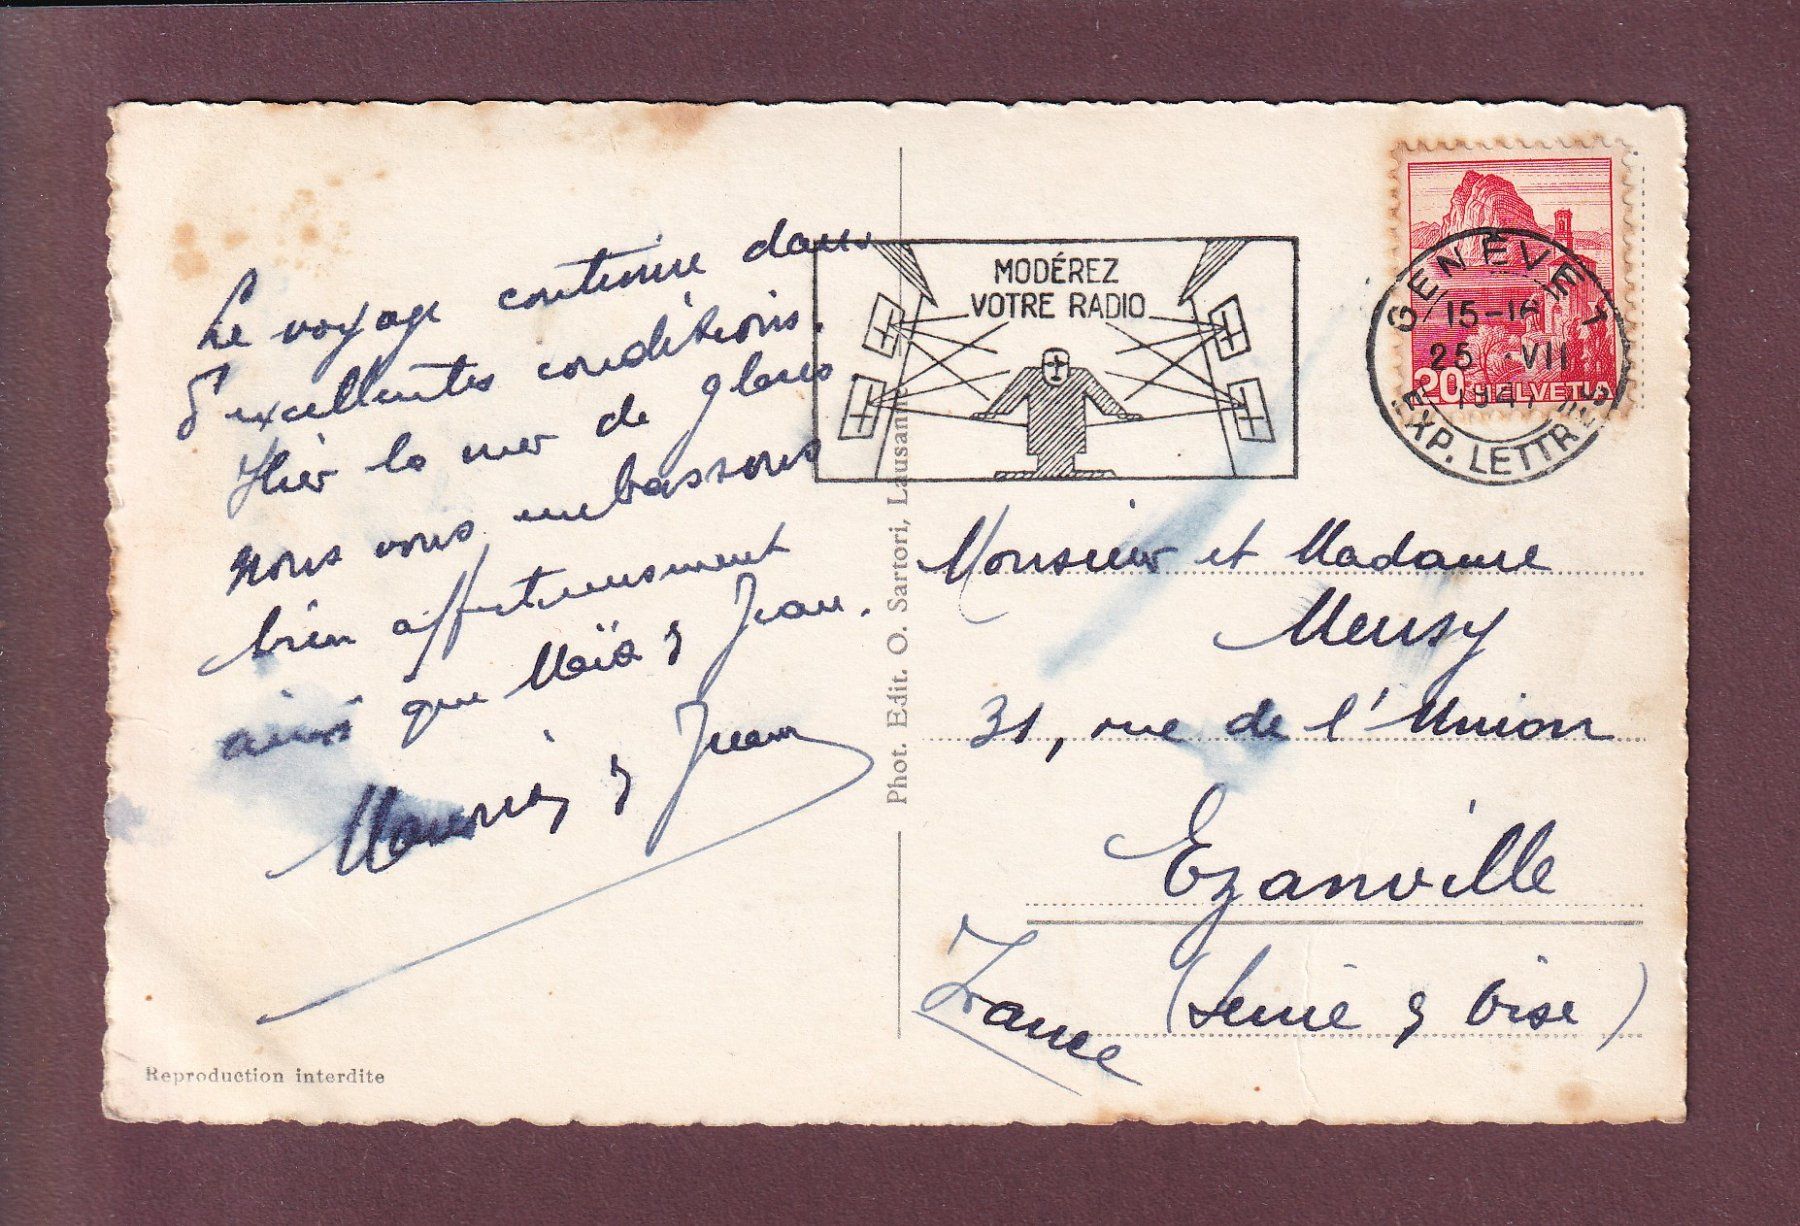 Le voyage continue dans
d'excellentes conditions.
Hier la mer de glaces.
Nous vous embrassons
bien affectueusement
ainsi que Maïa & Jean.
& Jean
MODÉREZ
VOTRE RADIO
GENÈVE 1
15-16
25 VII
194
EXP. LETTRES
20 HELVETIA
Phot. Edit. O. Sartori, Lausanne
Monsieur et Madame
Meusy
31, rue de l'Union
Ezanville
(Seine & Oise)
France
Reproduction interdite